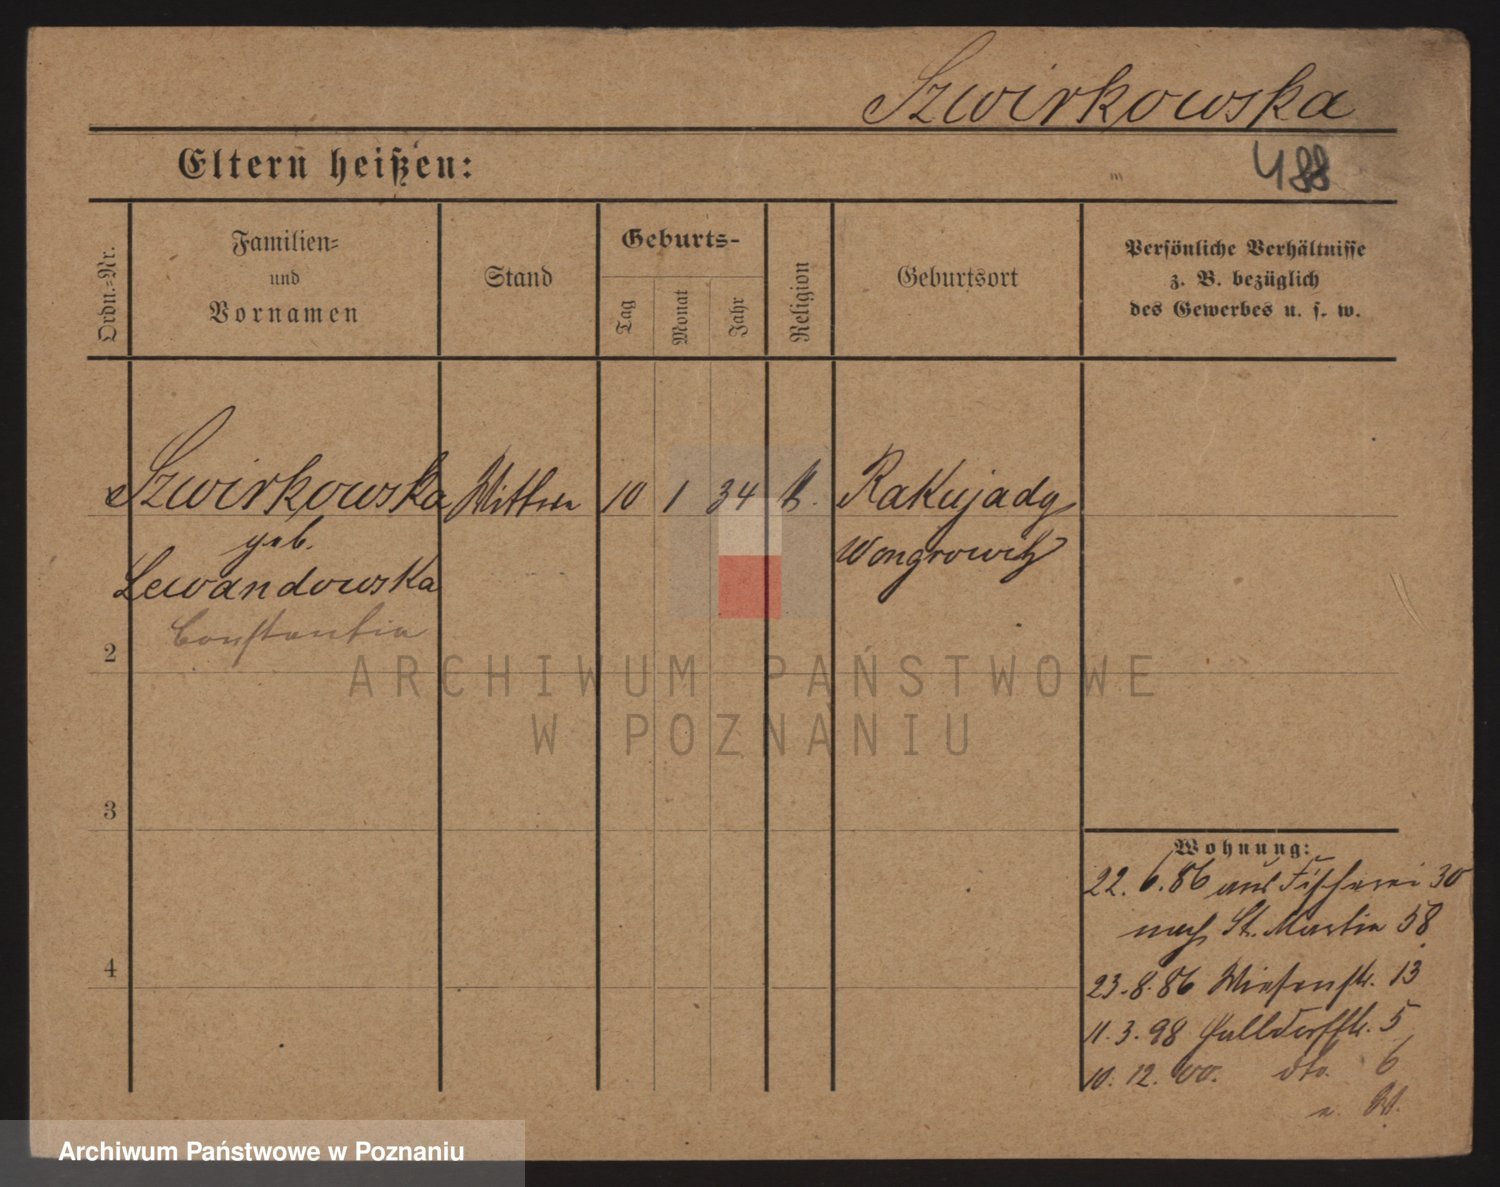 Szwirkowska
Eltern heißen:
488
Ordn.-Nr.
Familien-
und
Vornamen
Stand
Geburts-
Tag
Monat
Jahr
Religion
Geburtsort
Persönliche Verhältnisse
z. B. bezüglich
des Gewerbes u. s. w.
Szwirkowska Wittwe 10 1 34 K. Rakujady
geb. Wongrowitz
Lewandowska
Constantia
2
3
4
Wohnung:
22. 6. 86 aus Fischerei 30
nach St. Martin 58
23. 8. 86 Wiesenstr. 13
11. 3. 98 Halldorfstr. 5
10. 12. 00. dto. 6
ARCHIWUM PAŃSTWOWE
W POZNANIU
Archiwum Państwowe w Poznaniu